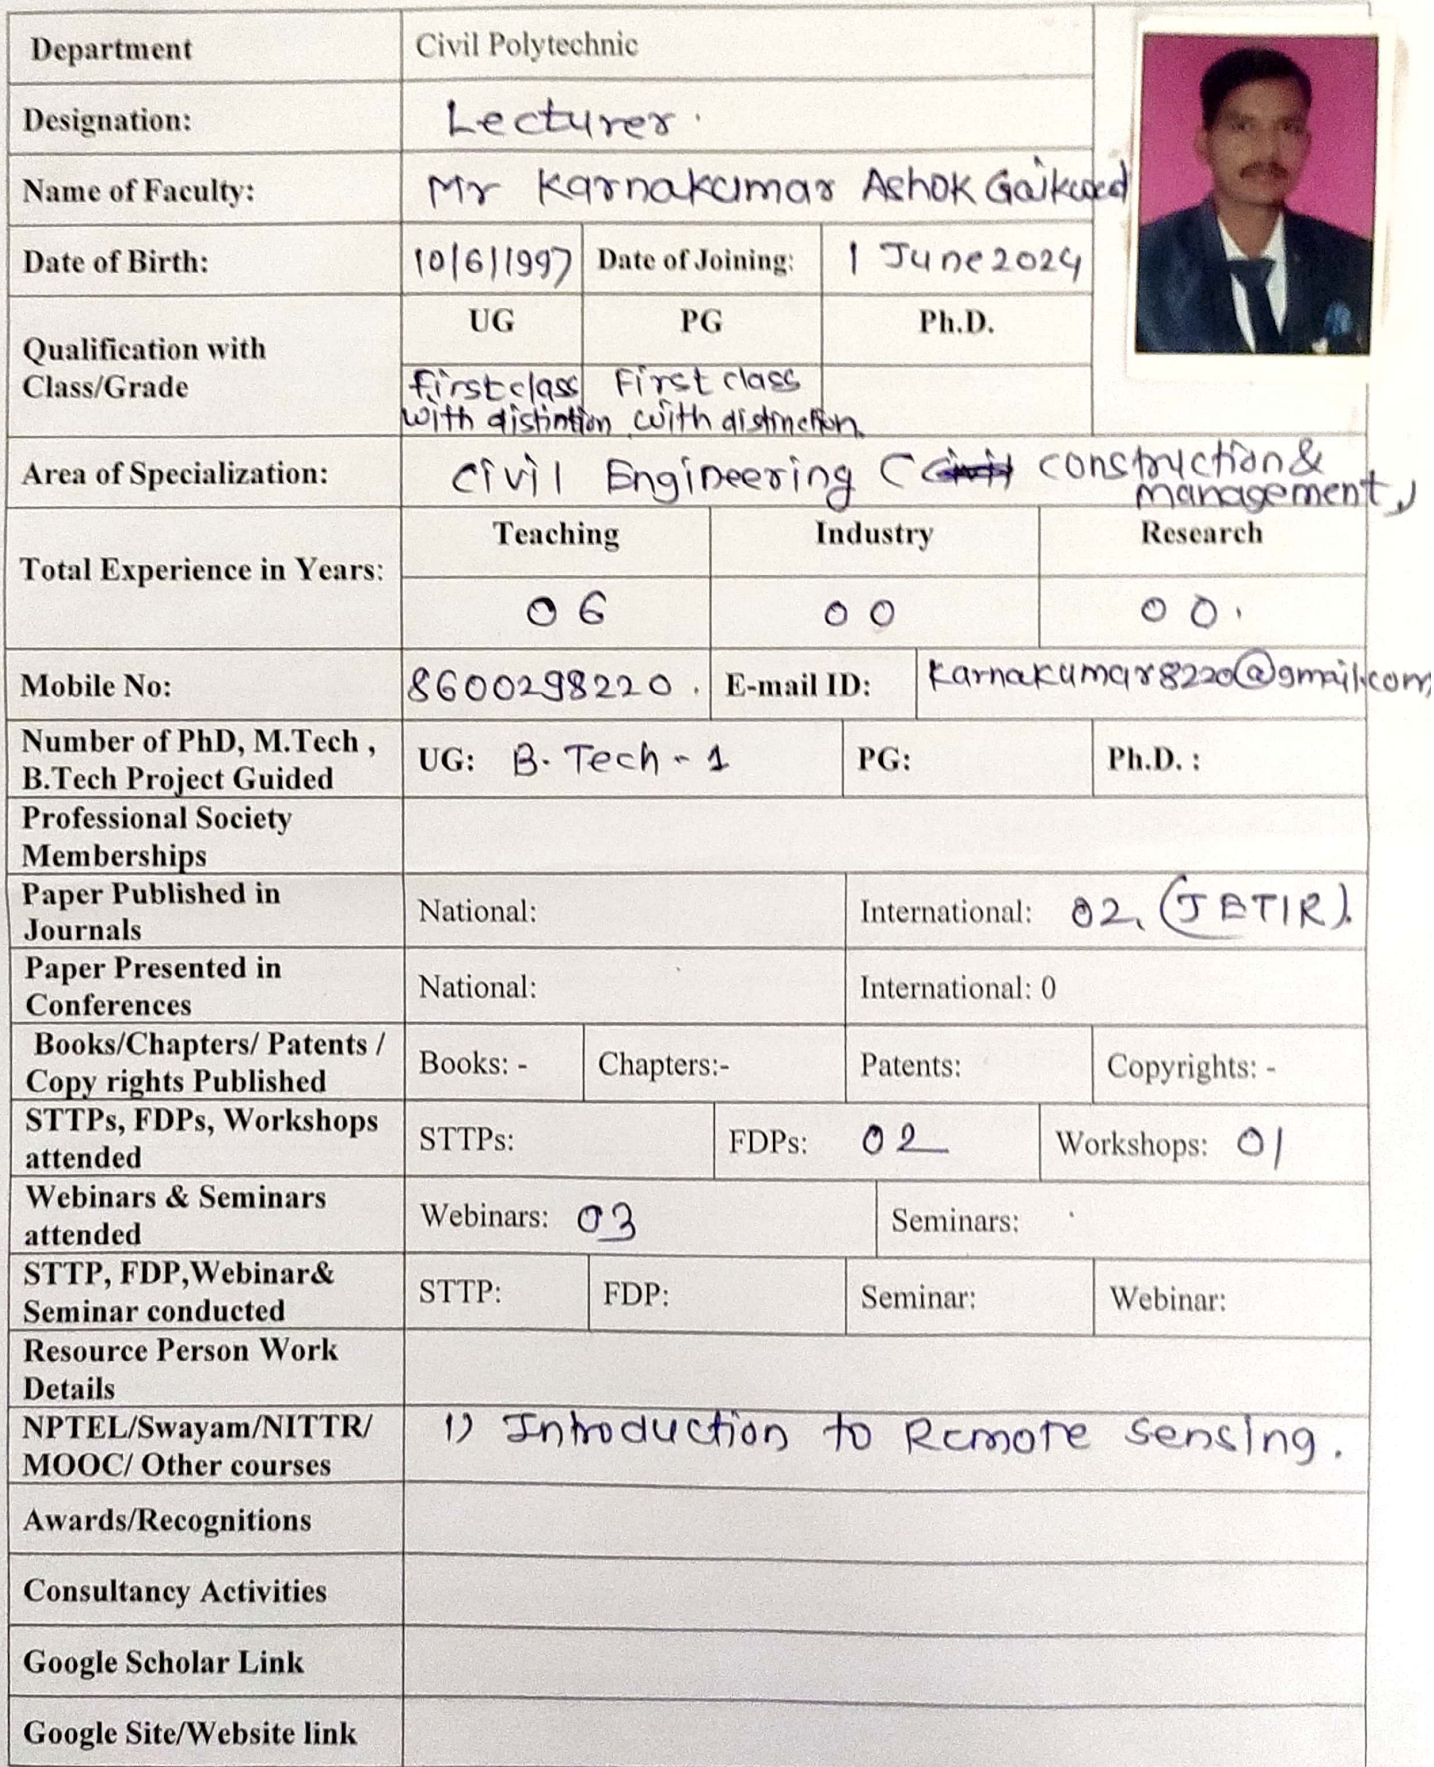 Department Civil Polytechnic
Designation: Lecturer.
Name of Faculty: Mr Karnakumar Ashok Gaikwad
Date of Birth: 10/6/1997 Date of Joining: 1 June 2024
Qualification with Class/Grade
UG PG Ph.D.
First class with distintion First class with distinction
Area of Specialization: Civil Engineering ( construction & management)
Total Experience in Years:
Teaching Industry Research
06 00 00.
Mobile No: 8600298220. E-mail ID: karnakumar8220@gmail.com
Number of PhD, M.Tech ,
B.Tech Project Guided
UG: B. Tech - 1 PG: Ph.D. :
Professional Society
Memberships
Paper Published in
Journals
National: International: 02, (JETIR).
Paper Presented in
Conferences
National: International: 0
Books/Chapters/ Patents /
Copy rights Published
Books: - Chapters:- Patents: Copyrights: -
STTPs, FDPs, Workshops
attended
STTPs: FDPs: 02 Workshops: 01
Webinars & Seminars
attended
Webinars: 03 Seminars:
STTP, FDP,Webinar&
Seminar conducted
STTP: FDP: Seminar: Webinar:
Resource Person Work
Details
NPTEL/Swayam/NITTR/
MOOC/ Other courses
1) Introduction to Remote Sensing.
Awards/Recognitions
Consultancy Activities
Google Scholar Link
Google Site/Website link